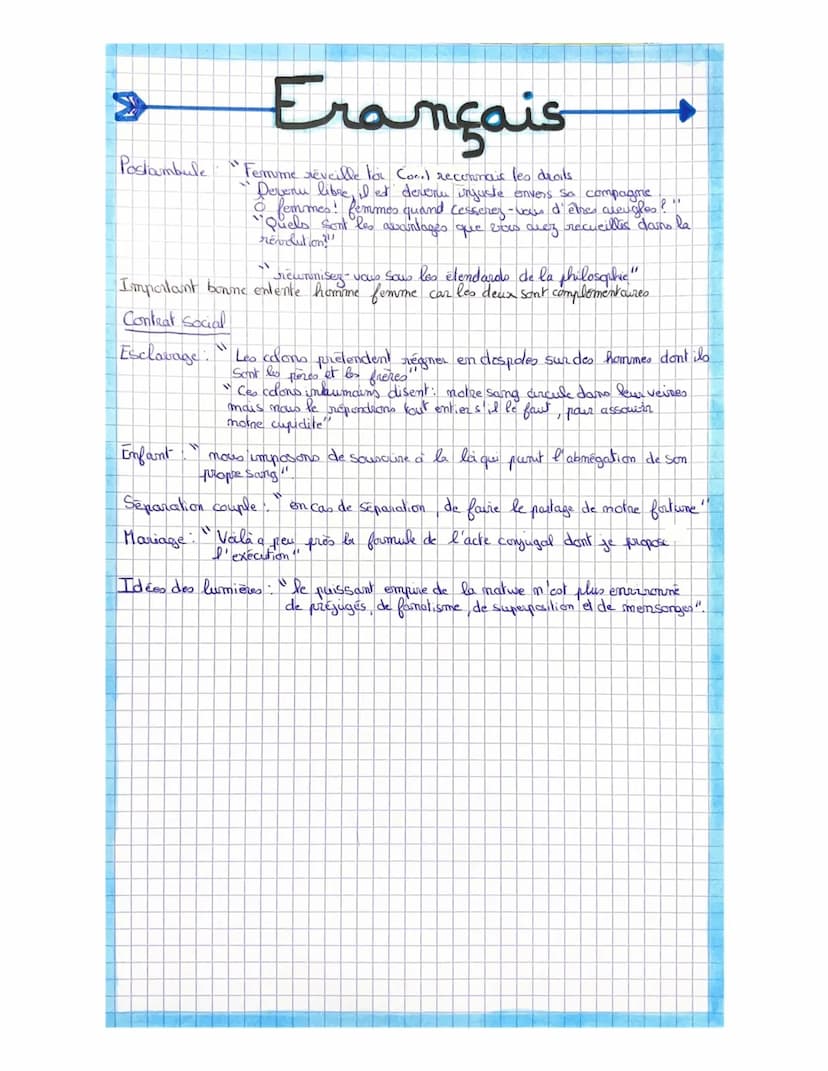 Français
Postambule : "Femme réveille toi (...) reconnais les droits
"Devenu libre, il est devenu injuste envers sa compagne.
Ô femmes! femmes quand cesserez-vous d'êtres aveugles?"
"Quels sont les avantages que vous avez recueillis dans la
révolution?"
"réunnisez-vous sous les étendards de la philosophie"
Important bonne entente homme femme car les deux sont complémentaires
Contrat social
Esclavage : "Les colons prétendent régner en despotes sur des hommes dont ils
sont les pères et les frères"
"Ces colons inhumains disent : notre sang circule dans leur veines
mais nous le répendrons tout entiers s'il le faut, pour assouvir
notre cupidité"
Enfant : "nous imposons de souscrire à la loi qui punit l'abnégation de son
propre sang".
Séparation couple : "en cas de séparation, de faire le partage de notre fortune"
Mariage : "Voilà a peu près la formule de l'acte conjugal dont je propose
l'exécution"
Idées des lumières : "le puissant empire de la nature n'est plus environné
de préjugés, de fanatisme, de superposition et de mensonges".